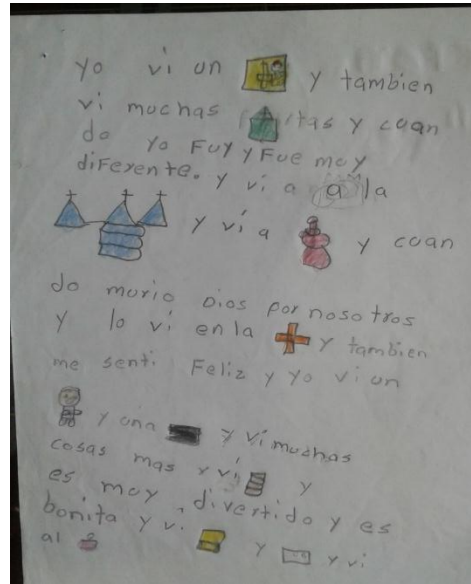 yo vi un y tambien
vi muchas itas y cuan
do yo Fuy y Fue muy
diferente. y vi a a la
y vi a y cuan
do murio Dios por nosotros
y lo vi en la y tambien
me senti Feliz y yo vi un
y una y vi muchas
cosas mas y vi y
es muy divertido y es
bonita y vi y y vi
al